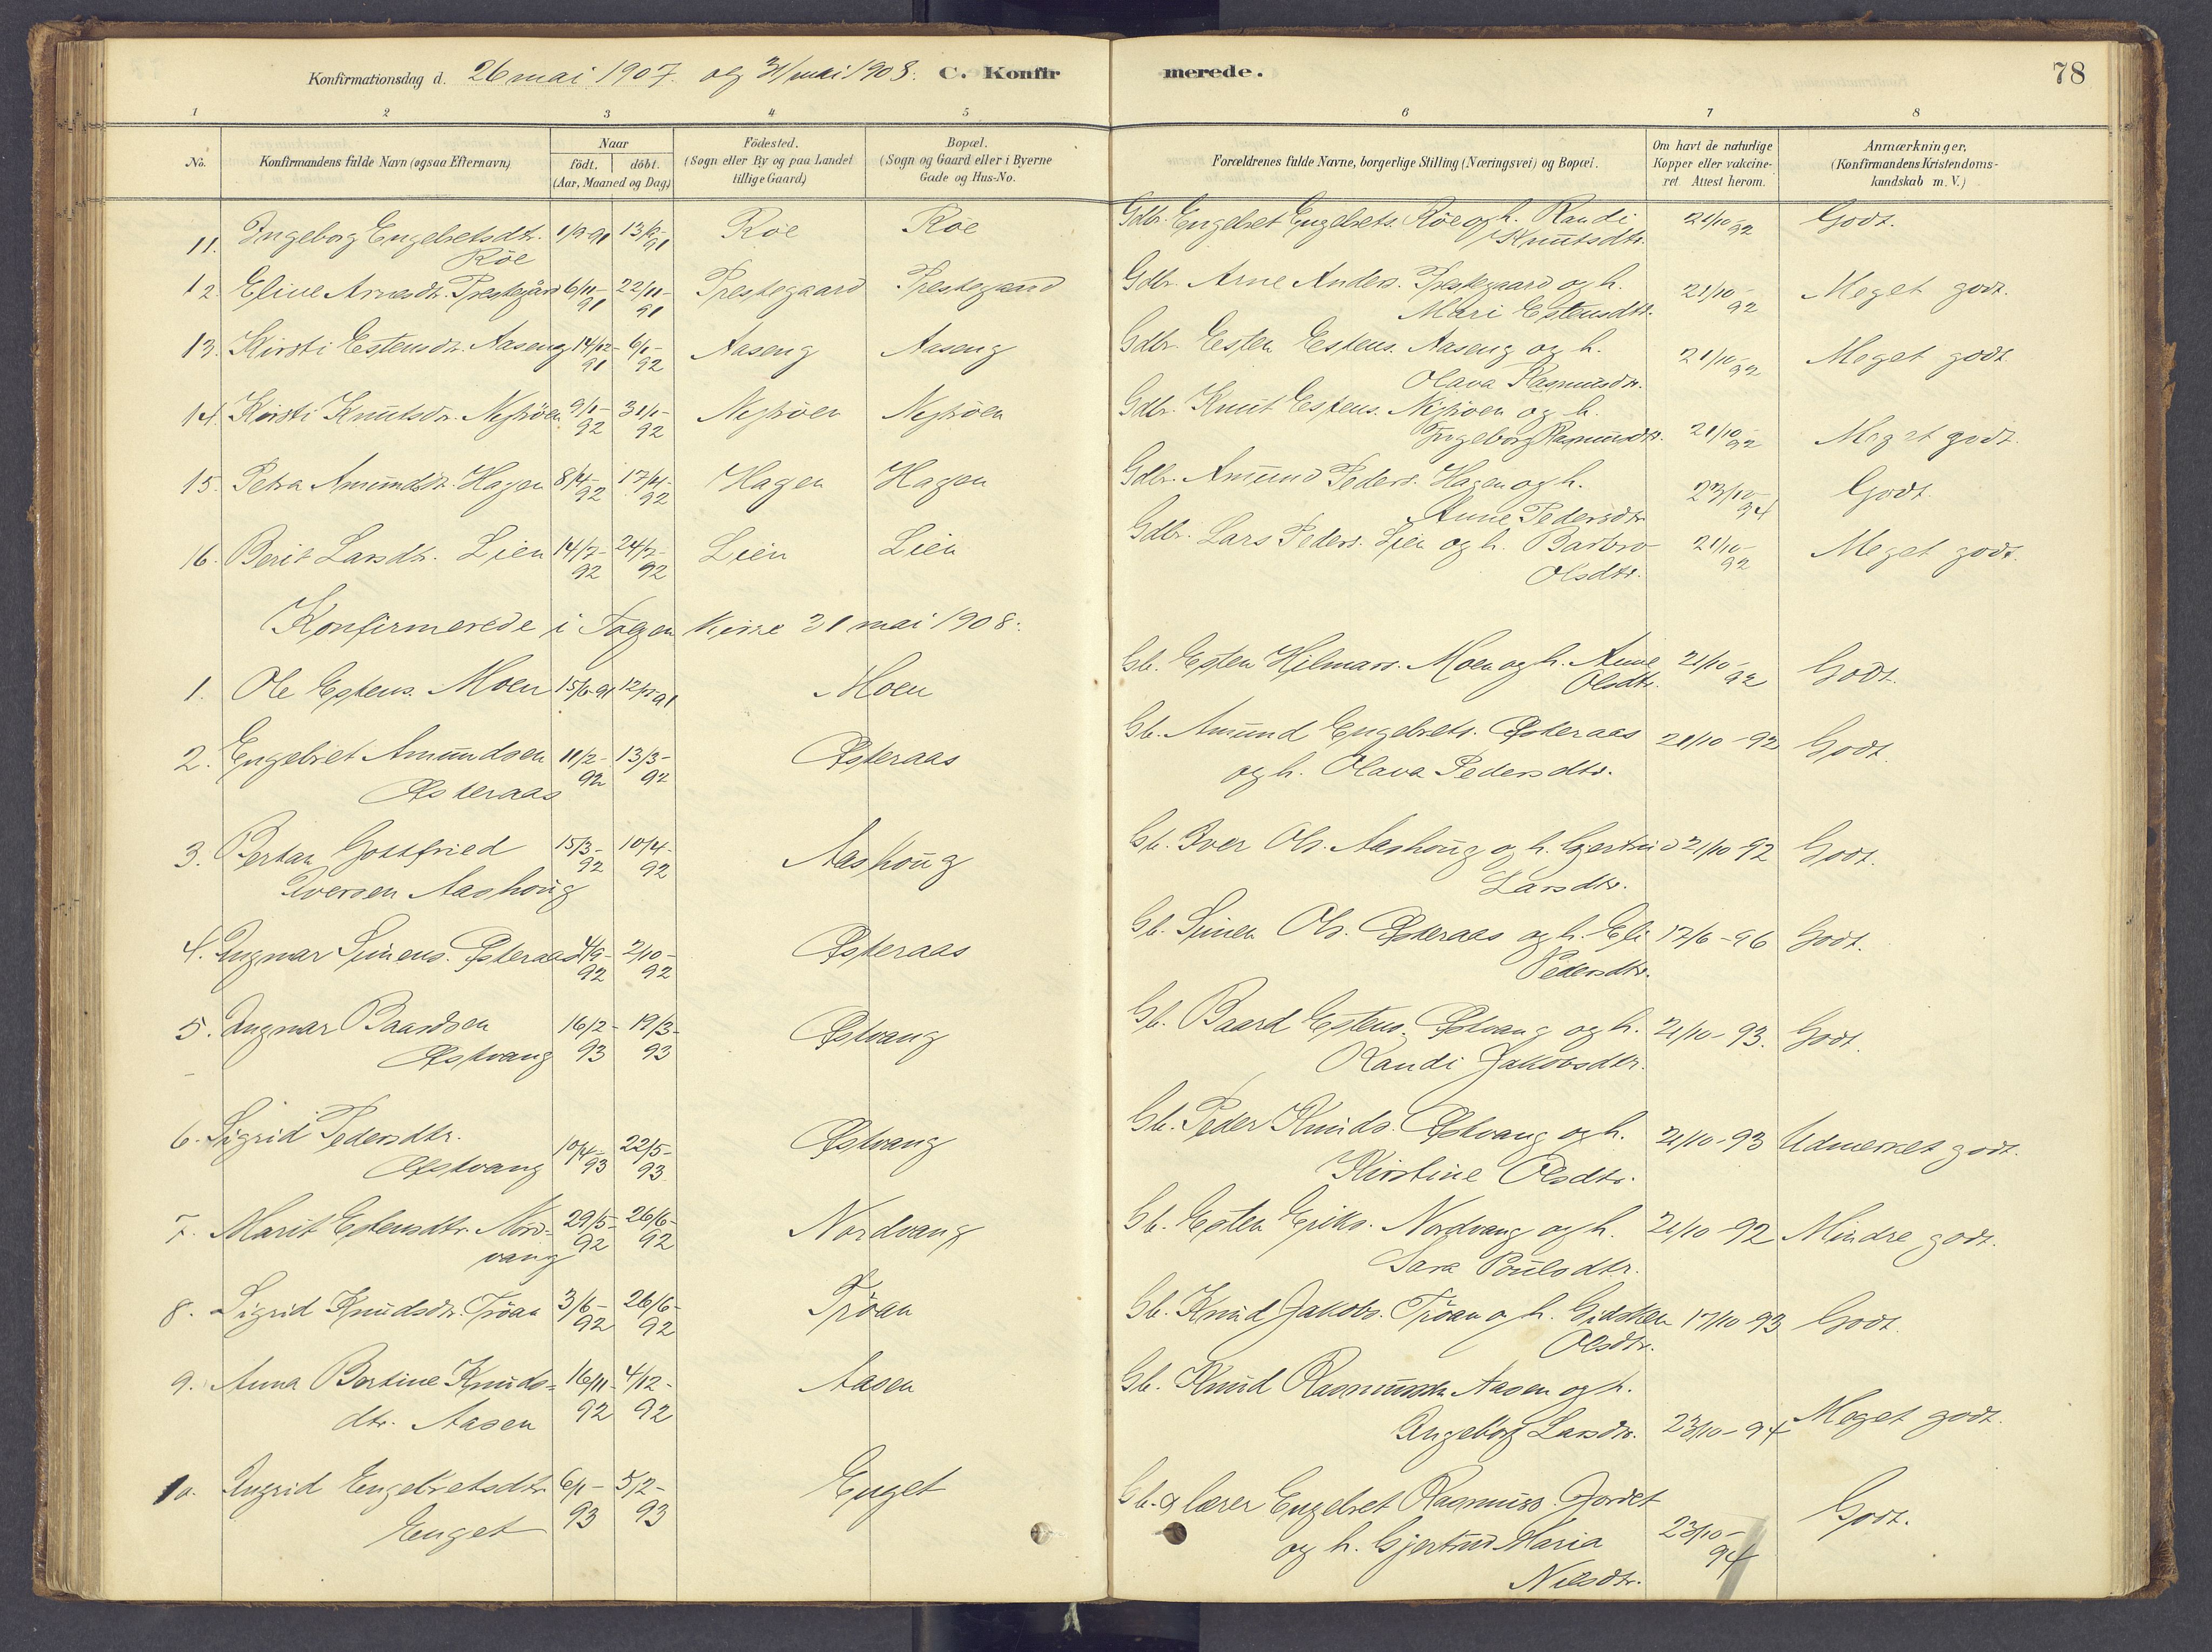 Konfirmationsdag d. 26 mai 1907. og 31/mai 1908. C. Konfir merede. 78
1 2 3 4 5 6 7 8
No.
Konfirmandens fulde Navn (ogsaa Efternavn)
Naar
født. døbt.
(Aar, Maaned og Dag)
Födested.
(Sogn eller By og paa Landet
tillige Gaard)
Bopæl.
(Sogn og Gaard eller i Byerne
Gade og Hus-No.
Forældrenes fulde Navne, borgerlige Stilling (Næringsvei) og Bopæl.
Om havt de naturlige
Kopper eller vakcine-
ret. Attest herom.
Anmærkninger,
(Konfirmandens Kristendoms-
kundskab m. V.)
11. Ingeborg Engebretsdtr. 1/9-91 13/9- Röe Röe Gdbr. Engebret Engebrets. Röe og h. Randi 21/10- Godt.
Röe 91 Knutsdtr. 92
12. Eline Arnesdtr. Prestegård 6/11- 22/11- Prestegaard Prestegaard Gdbr. Arne Anders. Prestegaard og h. 21/10- Meget godt.
91 91 Mari Estensdtr. 92
13. Kirsti Estensdtr. Aaseng 14/12- 6/1- Aaseng Aaseng Gdbr. Esten Estens. Aaseng og h. 21/10- Meget godt
91 92 Olava Rasmusdtr. 92
14. Kirsti Knutsdtr. 9/1- 31/1- Gdbr. Knut Estens. og h. 21/10- Meget godt.
92 92 Ingeborg Rasmusdtr. 92
15. Petra Amundsdtr. Hagen 8/4- 17/4- Hagen Hagen Gdbr. Amund Peders. Hagen og h. 23/10- Godt
92 92 Anne Pedersdtr. 94
16. Berit Larsdtr. Lien 14/7- 24/7- Lien Lien Gdbr. Lars Peders. Lien og h. Barbro 21/10- Meget godt.
92 92 Olsdtr. 92
Konfirmerede i Fogen Kirke 31 mai 1908.
1. Ole Estens. Moen 15/6-91 12/7-91 Moen Gb. Esten Hilmars. Moen og h. Anne 21/10- Godt.
Olsdtr. 92
2. Engebret Amundsen 11/2- 13/3- Østeraas Gb. Amund Engebrets. Østeraas 21/10-92 Godt.
Østeraas 92 92 og h. Olava Pedersdtr.
3. Bertan Gottfried 15/3- 10/4- Aashoug Gb. Iver Ols. Aashoug og h. Gjertrud 21/10-92 Godt.
Iversen Aashoug 92 92 Larsdtr.
4. Ingmar Simens. Østeraas 4/9- 2/10- Østeraas Gb. Simen Ols. Østeraas og h. Eli 17/6-96 Godt.
92 92 Pedersdtr.
5. Ingmar Baardsen 16/2- 19/3- Østvang Gb. Baard Estens. Østvang og h. 21/10-93. Godt.
Østvang 93 93 Randi Jakobsdtr.
6. Sigrid Pedersdtr. 10/4- 22/5- Østvang Gb. Peder Knuds. Østvang og h. 21/10-93 Udmerket godt.
Østvang 93 93 Kirstine Olsdtr.
7. Marit Estensdtr. Nord- 29/5- 26/6- Nordvang Gb. Esten Eriks. Nordvang og h. 21/10-92 Mindre godt.
vang 92 92 Sara Poulsdtr.
8. Sigrid Knudsdtr. Trøan 3/6- 26/6- Trøan Gb. Knud Jakobs. Trøan og h. Gidsken 17/10-93 Godt.
92 92 Olsdtr.
9. Anna Bertine Knuds- 16/11- 4/12- Aasen Gb. Knud Rasmussen Aasen og h.
dtr. Aasen 92 92 Ingeborg Larsdtr. 23/10-94 Meget godt.
10. Ingrid Engebretsdtr. 6/1- 5/2- Enget Gb. & lærer Engebret Rasmuss. Jordet Godt.
Enget 93 93 og h. Gjertrud Maria 23/10-
Nilsdtr. 94